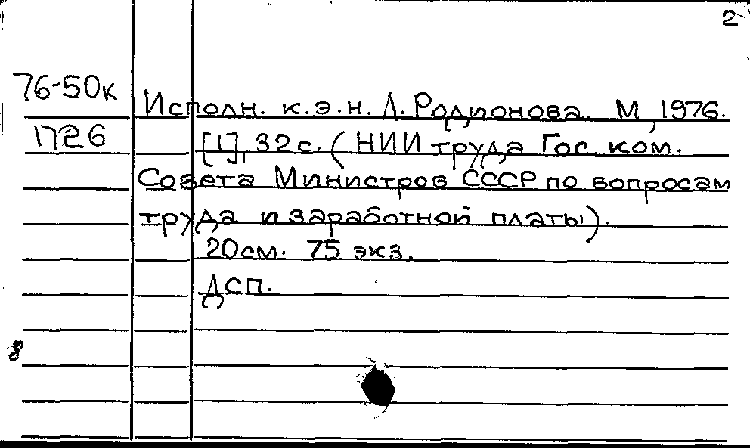 2
76-50к
Исполн. к.э.н. Л. Родионова. М., 1976.
1726
[1], 32 с. (НИИ труда Гос. ком.
Совета Министров СССР по вопросам
труда и заработной платы).
20 см. 75 экз.
ДСП.
8